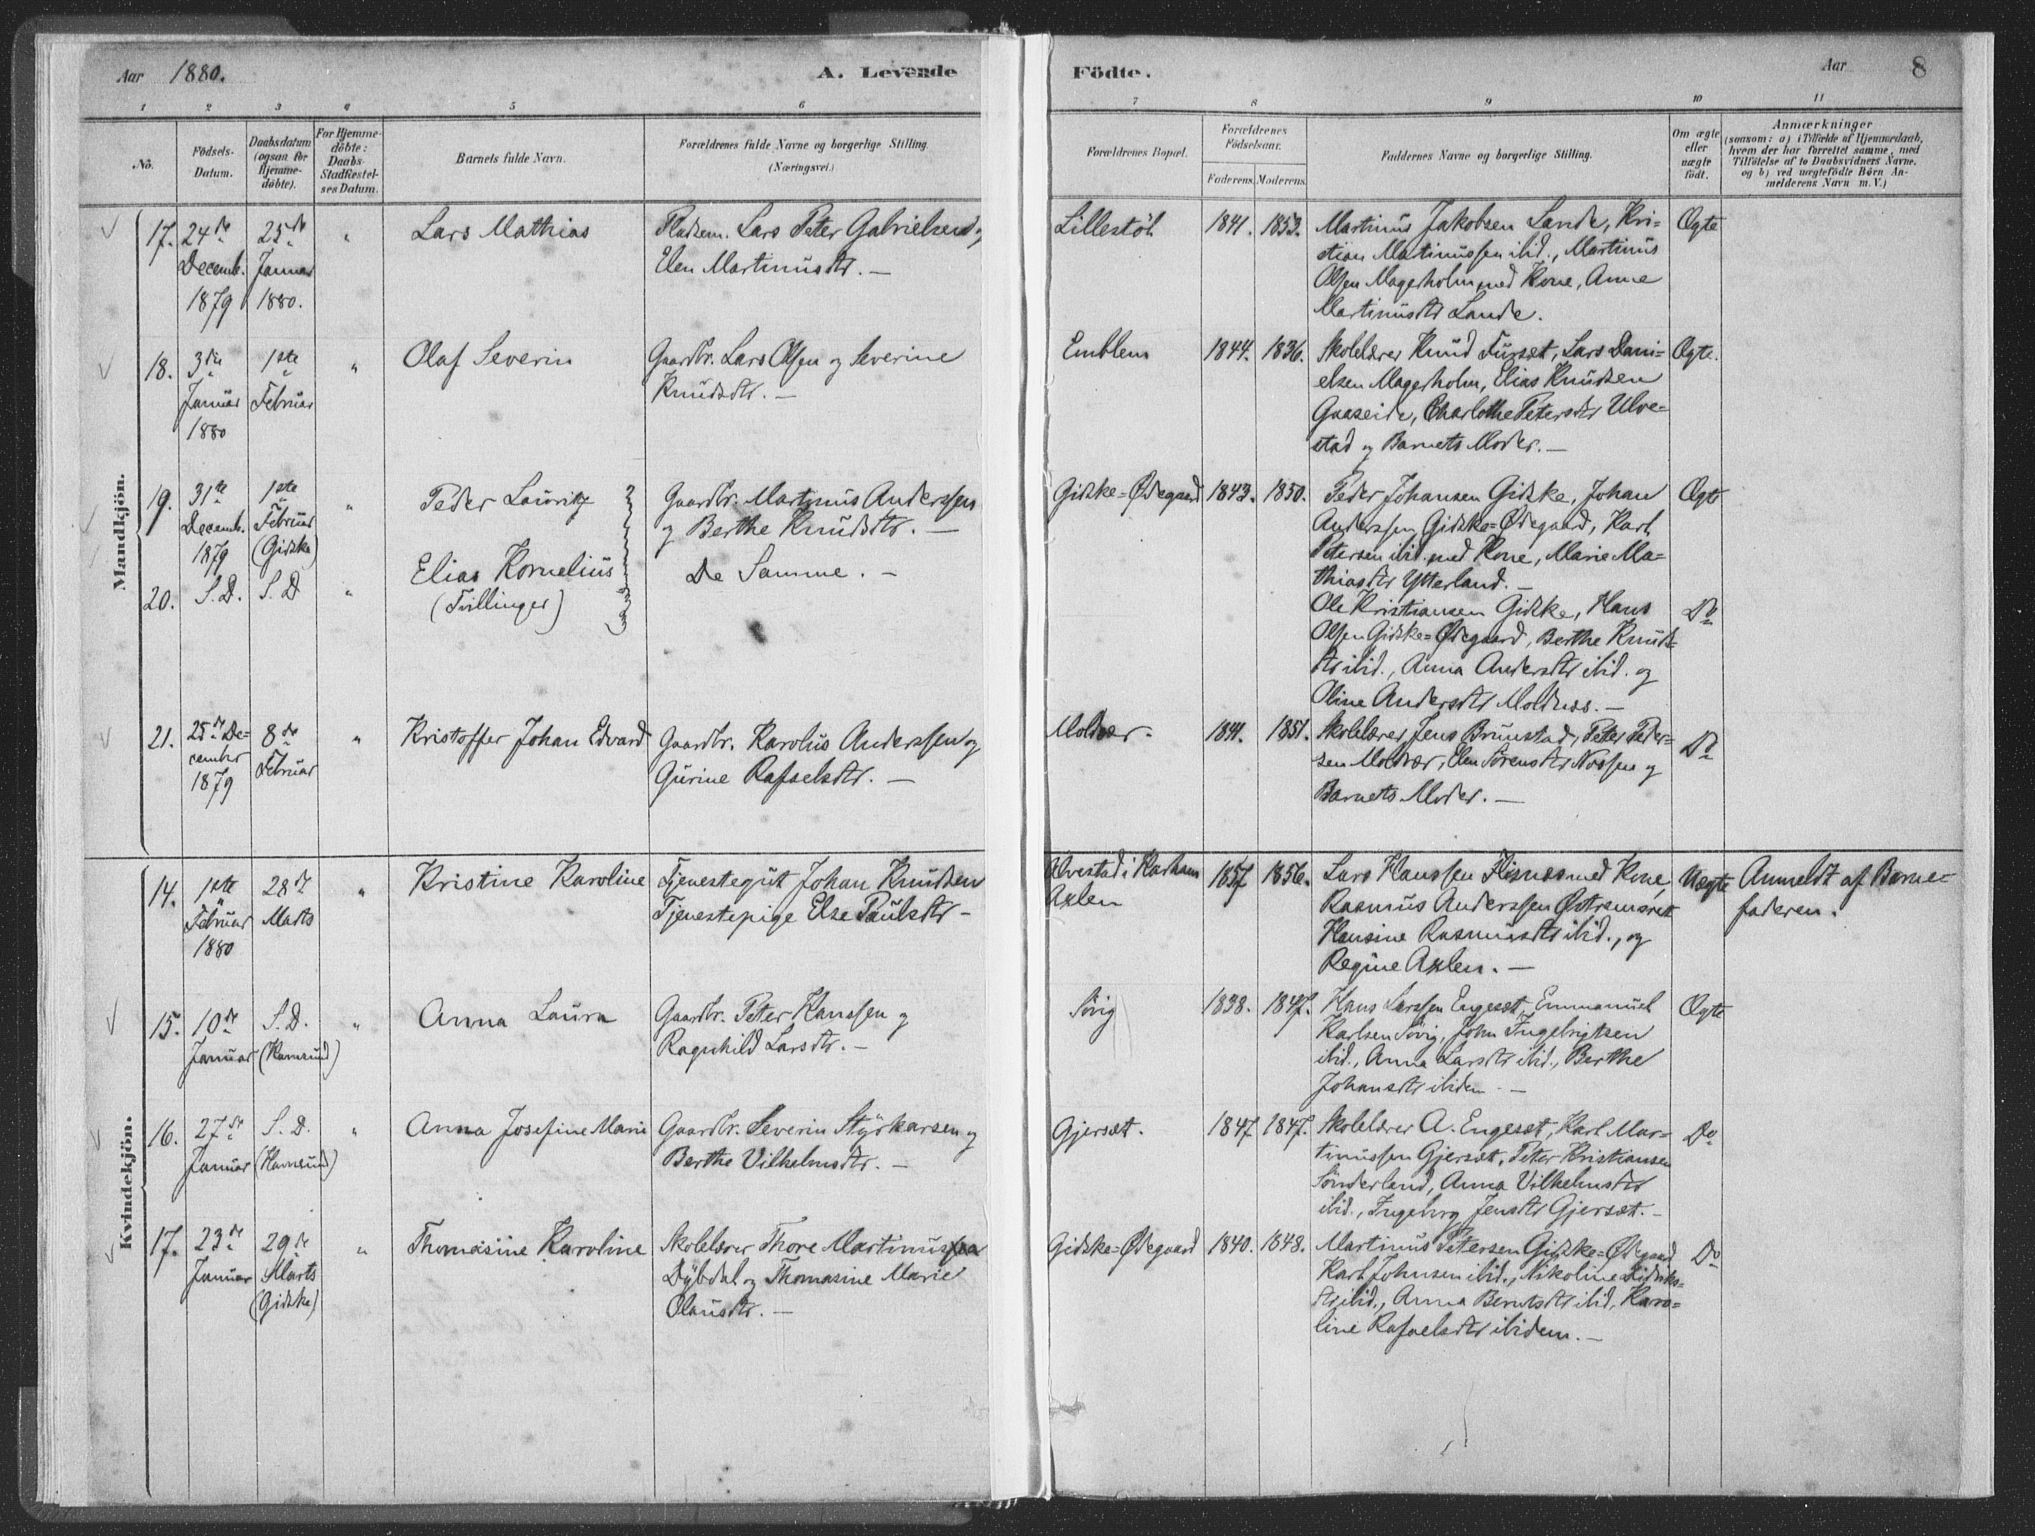 Aar 1880. A. Levende
Födte. Aar 8
1 2 3 4 5 6 7 8 9 10 11
No.
Födsels-
Datum.
Daabsdatum
(ogsaa for
Hjemme-
döbte).
For Hjemme-
döbte:
Daabs-
Stadfæstel-
ses Datum.
Barnets fulde Navn.
Forældrenes fulde Navne og borgerlige Stilling.
(Næringsvei.)
Forældrenes Bopæl.
Forældrenes
Födselsaar.
Faderens. Moderens.
Faddernes Navne og borgerlige Stilling.
Om ægte
eller
uægte
födt.
Anmærkninger
(saasom: a) i Tilfælde af Hjemmedaab,
hvem der har forrettet samme, med
Tilföielse af to Daabsvidners Navne.
og b) ved uægtefödte Börn An-
melderens Navn m. V.)
Mandkjön.
17. 24de
Decemb.
1879
25de
Januar
1880.
"
Lars Mathias
Pladsem. Lars Peter Gabrielsen og
Elen Martinusdtr. —
Lillestöl
1841. 1853.
Martinus Jakobsen Lande, Kri-
stian Martinussen ibid., Martinus
Olsen Magerholm med Kone, Anne
Martinusdtr Lande.
Ægte
18. 3die
Januar
1880
1ste
Februar
"
Olaf Severin
Gaardbr. Lars Olsen og Severine
Knudsdtr. —
Emblem
1844. 1836.
Skolelærer Knud Furset, Lars Dani-
elsen Magerholm, Elias Knudsen
Gaaseide, Charlothe Petersdtr Ulve-
stad og Barnets Moder. —
Ægte.
19. 31te
Decemb.
1879
1ste
Februar
(Gidske)
"
Peder Lauritz
Gaardbr. Martinus Anderssen
og Berthe Knudsdtr. —
Gidske=Ødegaard
1843. 1850.
Peder Johansen Gidske, Johan
Anderssen Gidske=Ødegaard, Karl
Petersen ibid. med Kone, Marie Ma-
thiasdtr Ytterland. —
Ægte
20. S.D. S.D "
Elias Kornelius
(Tvillinger)
De Samme. —
Ole Kristiansen Gidske, Hans
Olsen Gidske=Ødegaard, Berthe Knuds-
dtr ibid., Anna Andersdtr ibid. og
Oline Andersdtr Moldnes. —
Do
21. 25de De-
cember
1879
8de
Februar
"
Kristoffer Johan Edvard
Gaardbr. Karolus Anderssen og
Gurine Rafaelsdtr. —
Moldvær.
1841. 1851.
Skolelærer Jens Brunstad, Peter Peder-
sen Moldvær, Elen Sørensdtr og
Barnets Moder. —
Do
Kvindekjön.
14. 1ste
Februar
1880
28de
Marts
"
Kristine Karoline
Tjenestegut Johan Knudsen
Tjenestepige Else Paulsdtr —
Ulvestad i
Axlen
1857 1856.
Lars Hanssen Flisnes med Kone,
Rasmus Anderssen
Hansine Rasmusdtr ibid., og
Regine Axlen. —
Uægte
Anmeldt af Barne-
faderen.
15. 10de
Januar
S.D.
(Hamsund)
"
Anna Laura
Gaardbr. Peter Hanssen og
Ragnhild Larsdtr. —
Søvig
1838. 1847.
Hans Larssen Engeset, Emmanuel
Karlsen Søvig, John Ingebrigtsen
ibid., Anna Larsdtr ibid., Berthe
Johansdtr ibidem. —
Ægte
16. 27de
Januar
S.D.
(Hamsund)
"
Anna Josefine Marie
Gaardbr. Severin Styrkarsen og
Berthe Vilhelmsdtr. —
Gjersæt.
1847 1847.
Skolelærer A. Engeset, Karl Mar-
tinussen Gjersæt, Peter Kristiansen
Sønderland, Anna Vilhelmsdtr
ibid., Ingeborg Jensdtr Gjersæt. —
Do
17. 23de
Januar
29de
Marts
(Gidske)
"
Thomasine Karoline
Skolelærer Thore Martinussen
Dybdal og Thomasine Marie
Olausdtr. —
Gidske=Ødegaard
1840. 1848.
Martinus Petersen Gidske=Ødegaard
Karl Johnsen ibid., Nikoline Didriks-
dtr ibid., Anna Berntsdtr ibid, Karo-
line Rafaelsdtr ibidem. —
Do